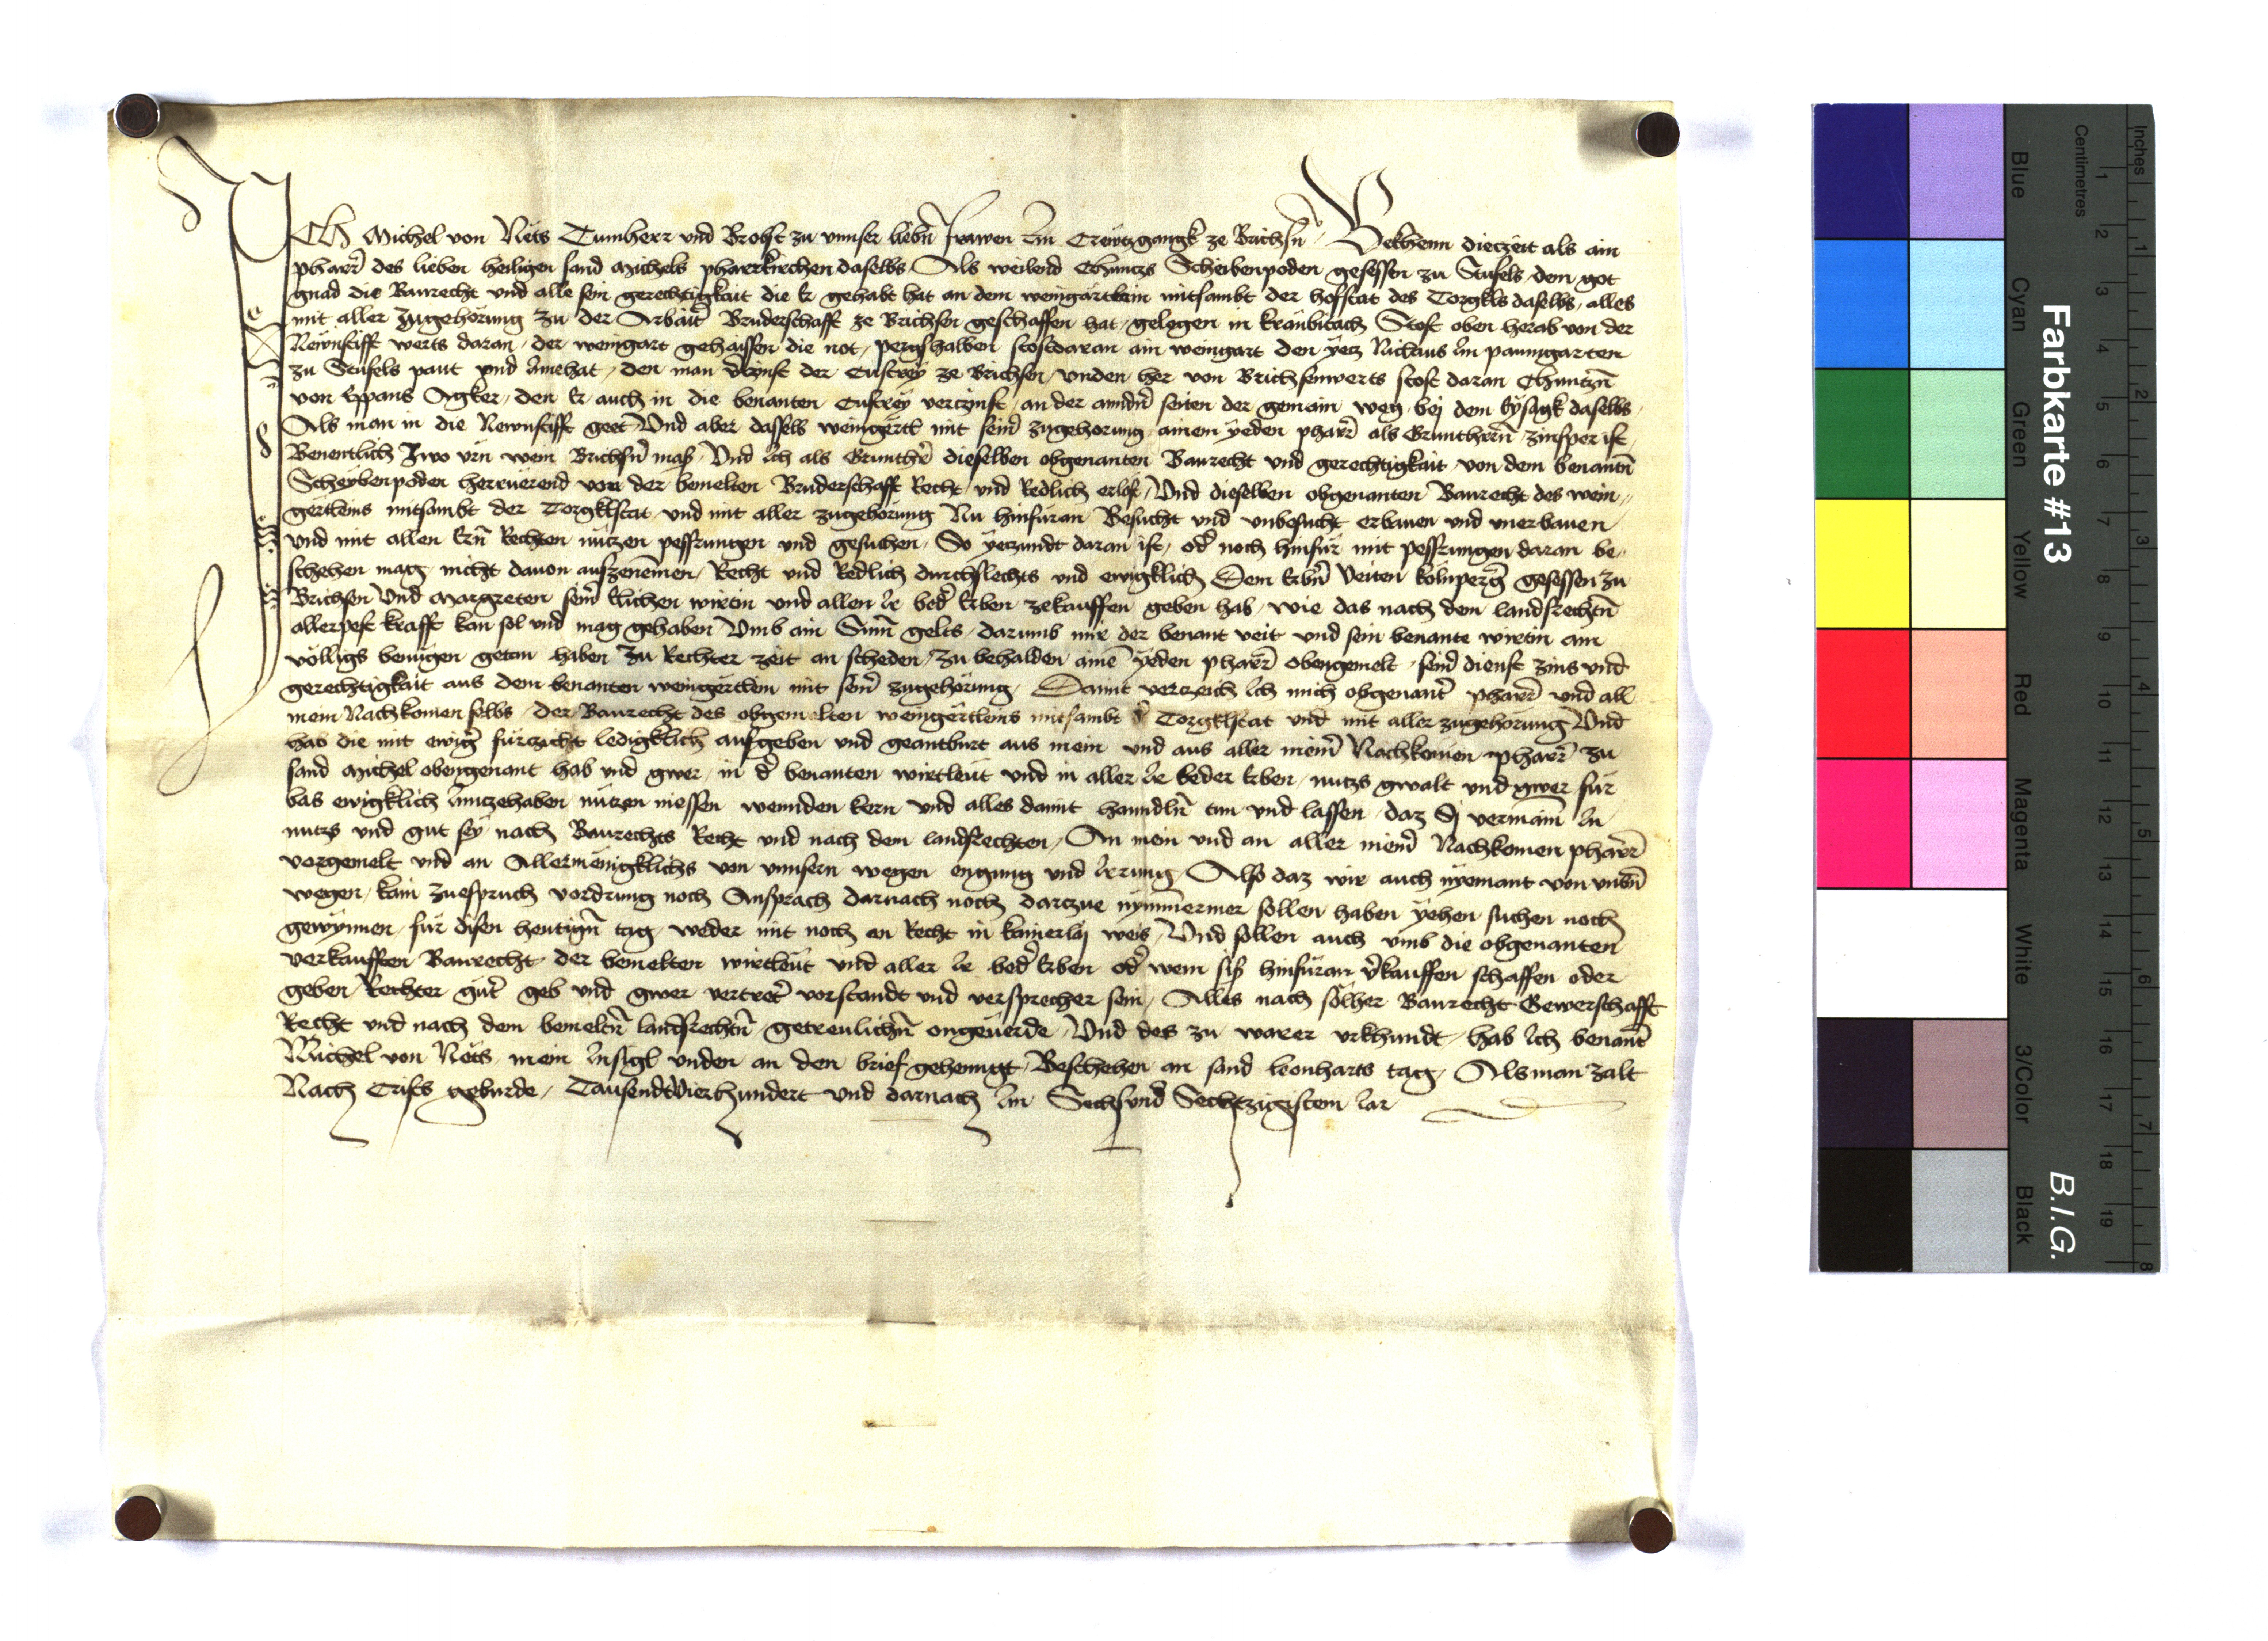 ICH Michel von Nëts Tumherr vnd Brobst zu vnnser liebñ frawen Im Crewtzgangk ze Brichsñ / Bekhenn diezeit als ain
pharrer̃ des lieben heiligen sand Michels pharrkirchen daselbs Als weilend Chuntzs Scheibenpoden gesessen zu Stufels dem got
gnad die Baurecht vnd alle sein gerechtigkait die Er gehabt hat an dem weingärtlein mitsambt der hofstat des Torgkls daselbs / alles
mit aller Zugehorung zu der Arbait̃ Bruderschafft ze Brichsen geschaffen hat / gelegen in kranbitach Stost oben herab von der
Newnstifft werts daran / der weingart gehaissen die not / pergshalben stost daran ain weingart den ÿetz Niclaus Im paumgarten
zu Stufels paut vnd Innehat / den man v̉zinst der Custreÿ ze Brichsen / vnden her von Brichsenwerts stost daran Chuntzñ
von Eppans Agker / den Er auch in die benanten Custreÿ verczinst / an der anndñ seiten der gemain weg bej dem Eÿsagk daselbs /
Als man in die Newnstifft geet Vnd aber dasselb weingertl mit seiñ zugehorung ainem ÿeden pharrer̃ als Grunthern̄ / zinsper ist /
Benentlich Zwo vrn̄ wein Brichsñ mass / Vnd Ich als Grunther̃ dieselben obgenanten Baurecht vnd gerechtigkait / von dem benantñ
Scheÿbenpoden herruerend von der bemelten Bruderschafft Recht vnd Redlich erlöst / Vnd dieselben obgenanten Baurecht des wein //
gertleins mitsambt der Torgklstat vnd mit aller zugehorung Nu hinfüran Besucht vnd vnbesucht erbauen vnd vnerbauen
vnd mit allen Ern̄ Rechten nützen pessrungen vnd gesuchen / So ÿetzundt daran ist / od̉ noch hinfür mit pessrungen daran be /
schehen mag / nicht dauon aufzenemen / Recht vnd Redlich durchslechts vnd ewigklich Dem Erbñ Veiten kölnperg̃ gesessen zu
Brichsen Vnd Margreten seiñ Elichen wirtin vnd allen Ir bed̉ Erben zekauffen geben hab / wie das nach dem landsrechtñ
allerpest krafft kan sol vnd mag gehaben Vmb ain Sum̄ gelts / darumb mir der benant veit vnd sein benante wirtin ain
völligs benügen getan haben Zu Rechter zeit an scheden / Zu behalden aim̄ ÿeden pharrer̃ obengemelt / seiñ dienst zins vnd
gerechtigkait aus dem benanten weingertlein mit seiñ zugehörung / Damit verzeich Ich mich obgenant̃ pharrer̃ vnd all
mein Nachkomen selbs / der Baurecht des obgemelten weingertleins mitsambt d̉ Torgklstat vnd mit aller zugehorung Vnd
hab die mit ewig̃ fürzicht ledigklich aufgeben vnd geantburt aus mein vnd aus aller meiñ Nachkomen pharrer̃ zu
sand Michel obengenant hab vnd gwer / in d̉ benanten wirtleüt vnd in aller Ir beder Erben / nutzs gwalt vnd gwer für
bas ewigklich Inntzehaben nützen niessen wennden kern vnd alles damit hanndlñ tun vnd lassen / daz Sj vermaiñ In
nutzs vnd gut sey nach Baurechts Recht vnd nach dem landsrechten / An mein vnd an aller meiñ Nachkomen pharrer̃
vorgemelt vnd an Allermenigklichs von vnnsern wegen engung vnd Irrung / Also daz wir auch nÿemant von vnsñ
wegen / kain zuespruch vordrung noch Ansprach darnach noch darczue nÿmmermer sollen haben ÿehen suchen noch
gewÿnnen / für disen heutigñ tag / weder mit noch an Recht in kainerlaj weis / Vnd sollen auch vmb die obgenanten
verkaufften Baurecht der bemelten wirtleüt vnd aller Ir bed̉ Erben od̉ wem siss hinfüran v̉kauffen schaffen oder
geben Rechter güt̃ geb vnd gwer vertret̃ vorstandt vnd versprecher sein / Alles nach sölher Baurecht Gewerschafft
Recht vnd nach dem bemeltñ landsrechtñ / getreulichñ ongeuerde / Vnd des zu warer vrkhundt / hab Ich benant̃
Michel von Nëts mein Insigl vnden an den brief gehenngt / Beschehen an sand Leonharts tag / Als man zalt
Nach Crists geburde / Tausendt Vierhundert vnd darnach Im Sechsvnd Sechtzigistem Iar
Farbkarte #13
B.I.G.
Blue
Cyan
Green
Yellow
Red
Magenta
White
3/Color
Black
Centimetres
1 2 3 4 5 6 7 8 9 10 11 12 13 14 15 16 17 18 19
Inches
1 2 3 4 5 6 7 8